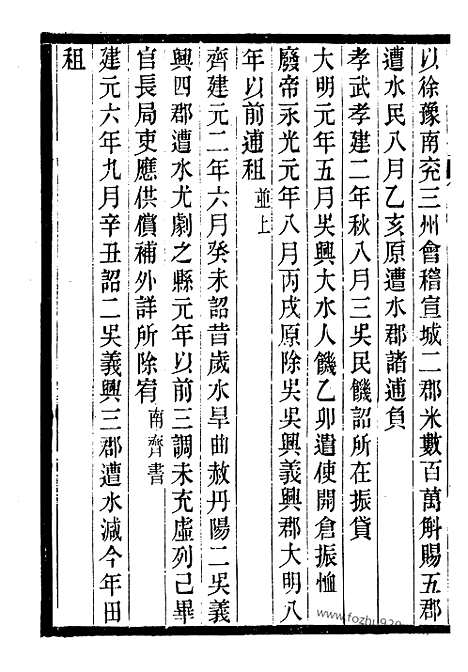 以徐豫南兖三州會稽宣城二郡米數百萬斛賜五郡
遭水民八月乙亥原遭水郡諸逋負
孝武孝建二年秋八月三吳民饑詔所在振貸
大明元年五月吳興大水人饑乙卯遣使開倉振恤
廢帝永光元年八月丙戌原除吳吳興義興郡大明八
年以前逋租並上
齊建元二年六月癸未詔昔歲水旱曲赦丹陽二吳義
興四郡遭水尤劇之縣元年以前三調未充虛列已畢
官長局吏應供償補外詳所除宥南齊書
建元六年九月辛丑詔二吳義興三郡遭水減今年田
租
www.fozhu920.com